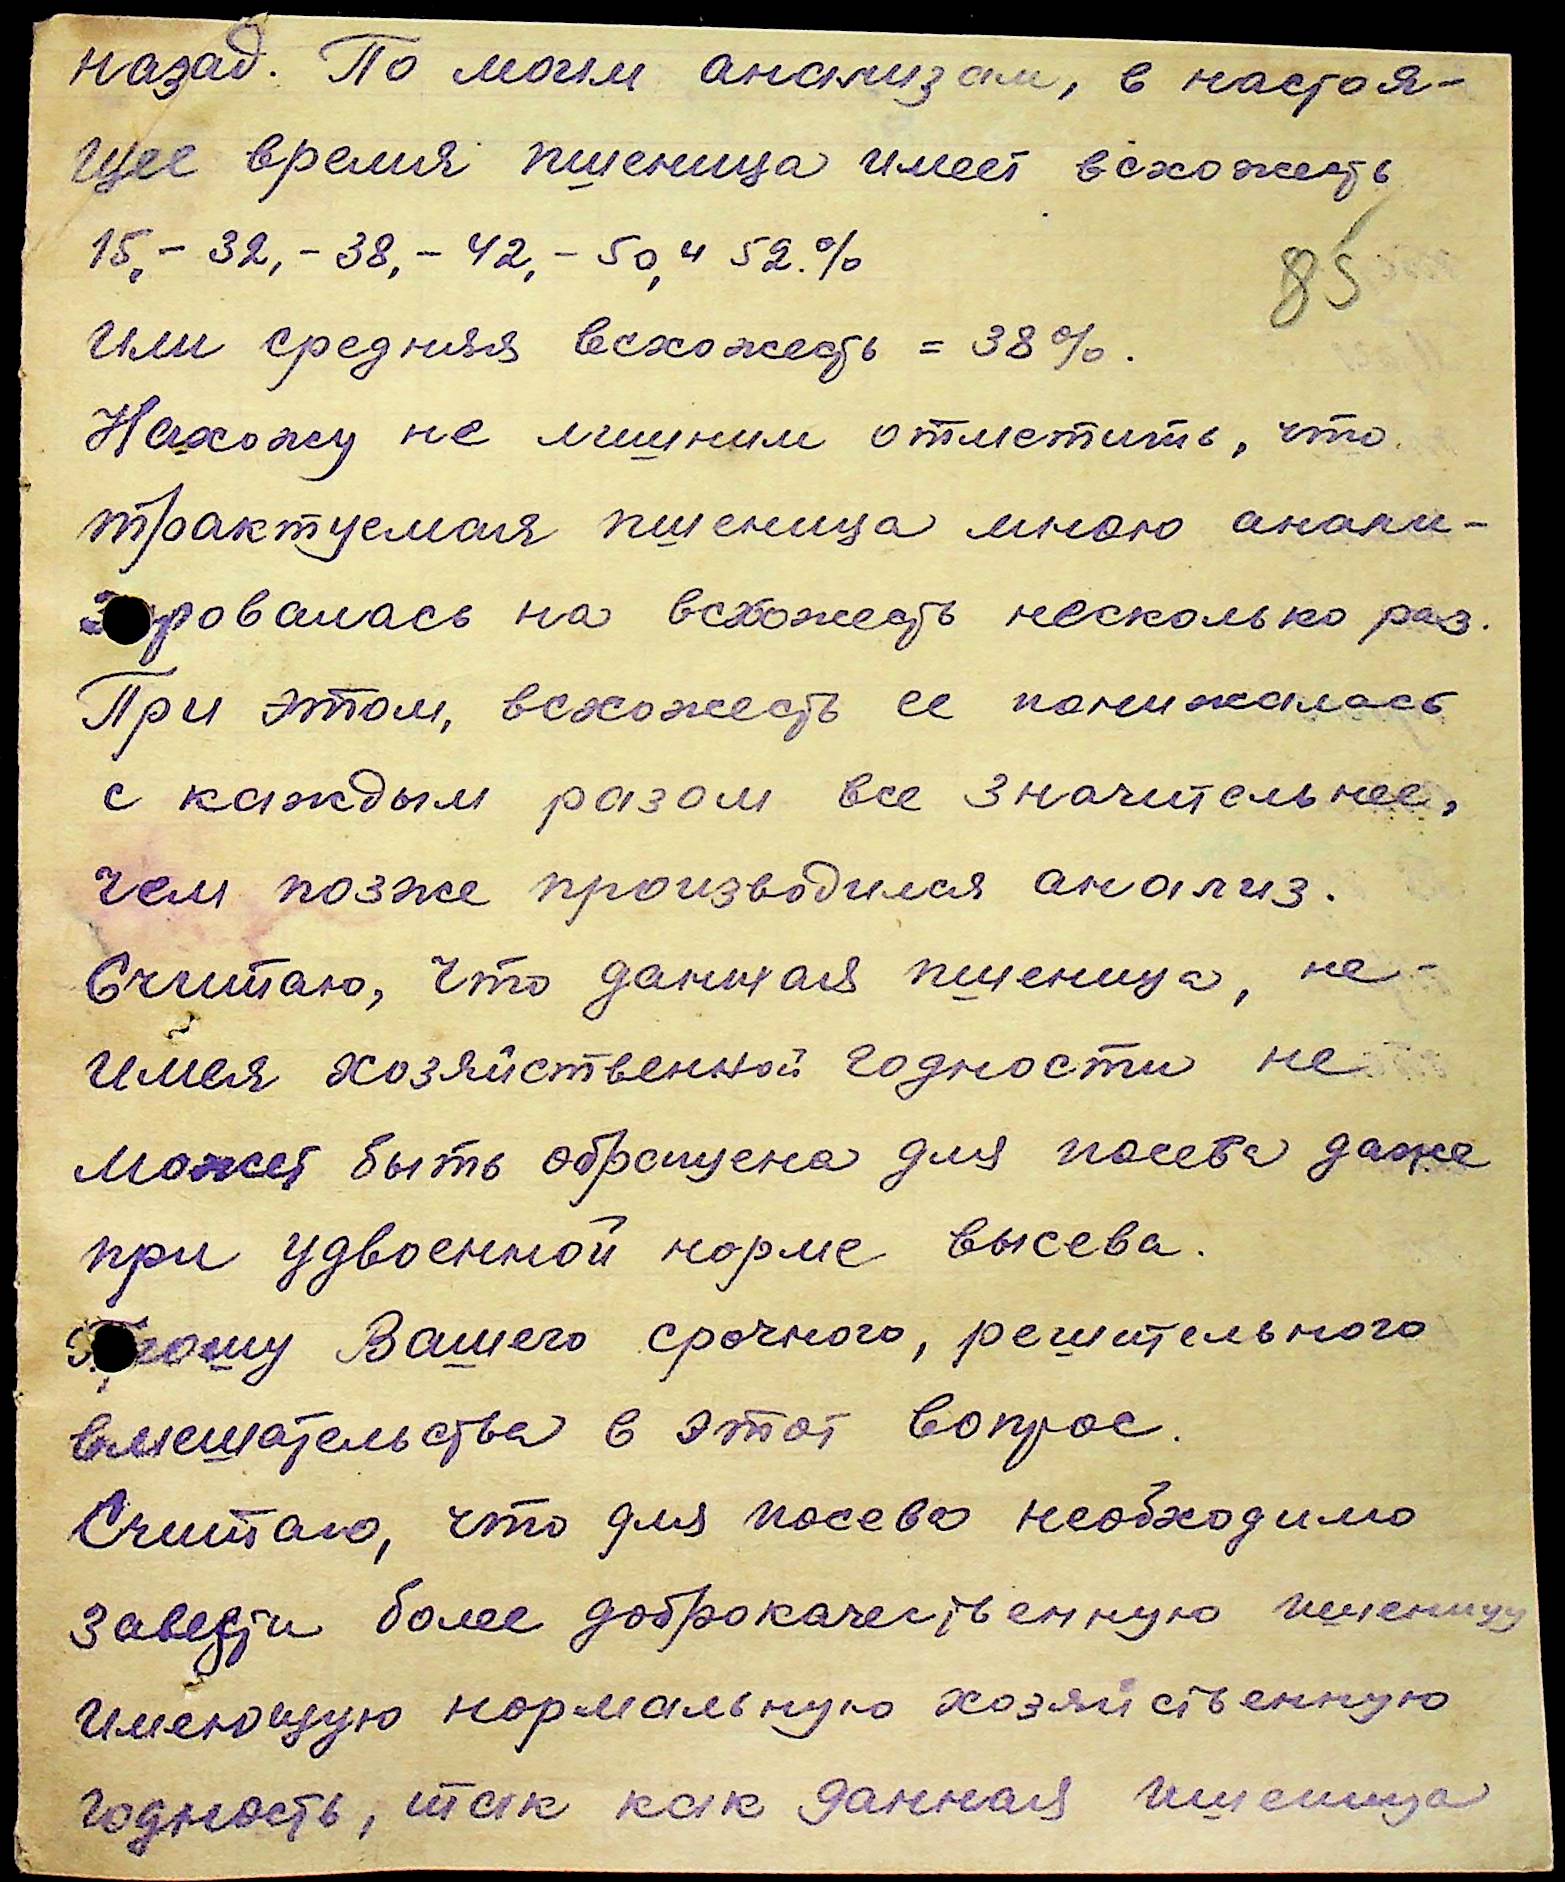 назад. По моим анализам, в настоя-
щее время пшеница имеет всхожесть
15,- 32,- 38,- 42,- 50, и 52.%
85
или средняя всхожесть = 38%.
Нахожу не лишним отметить, что
трактуемая пшеница мною анали-
зировалась на всхожесть несколько раз.
При этом, всхожесть ее понижалась
с каждым разом все значительнее,
чем позже производился анализ.
Считаю, что данная пшеница, не-
имея хозяйственной годности не
может быть обращена для посева даже
при удвоенной норме высева.
Прошу Вашего срочного, решительного
вмешательства в этот вопрос.
Считаю, что для посева необходимо
завести более доброкачественную пшеницу
имеющую нормальную хозяйственную
годность, так как данная пшеница